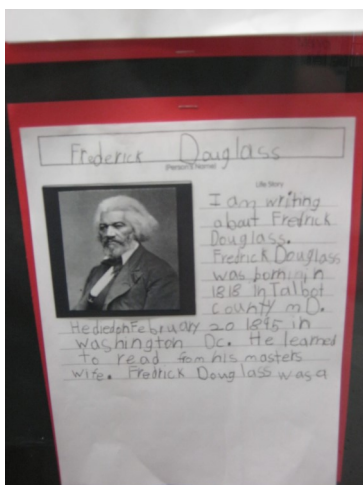 Frederick Douglass
(Person's Name)
Life Story
I am writing
about Fredrick
Douglass.
Fredrick Douglass
was born in
1818 In Talbot
County mD.
He died on February 20 1895 in
washington Dc. He learned
to read from his masters
wife. Fredrick Douglass was a